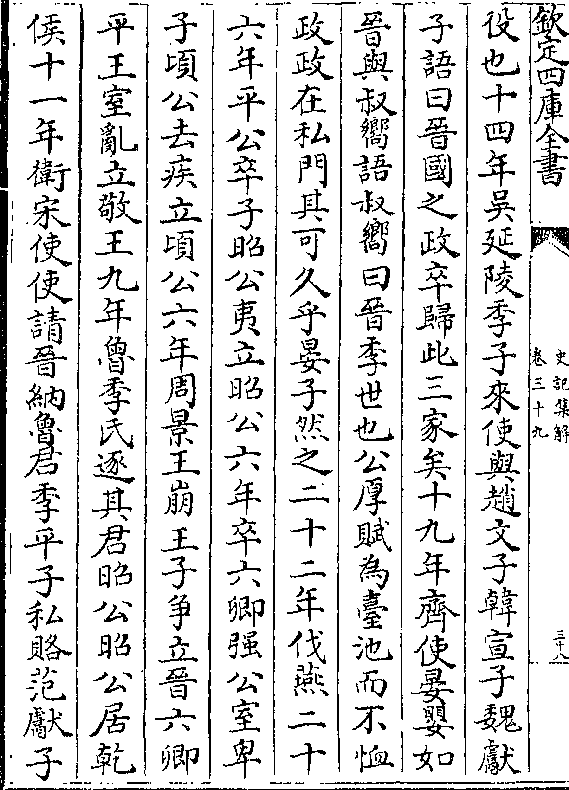 欽定四庫全書
史記集解
卷三十九
三十八
役也十四年吳延陵季子來使與趙文子韓宣子魏獻
子語曰晉國之政卒歸此三家矣十九年齊使晏嬰如
晉與叔嚮語叔嚮曰晉季世也公厚賦為臺池而不恤
政政在私門其可久乎晏子然之二十二年伐燕二十
六年平公卒子昭公夷立昭公六年卒六卿强公室卑
子頃公去疾立頃公六年周景王崩王子爭立晉六卿
平王室亂立敬王九年魯季氏逐其君昭公昭公居乾
侯十一年衛宋使使請晉納魯君季平子私賂范獻子